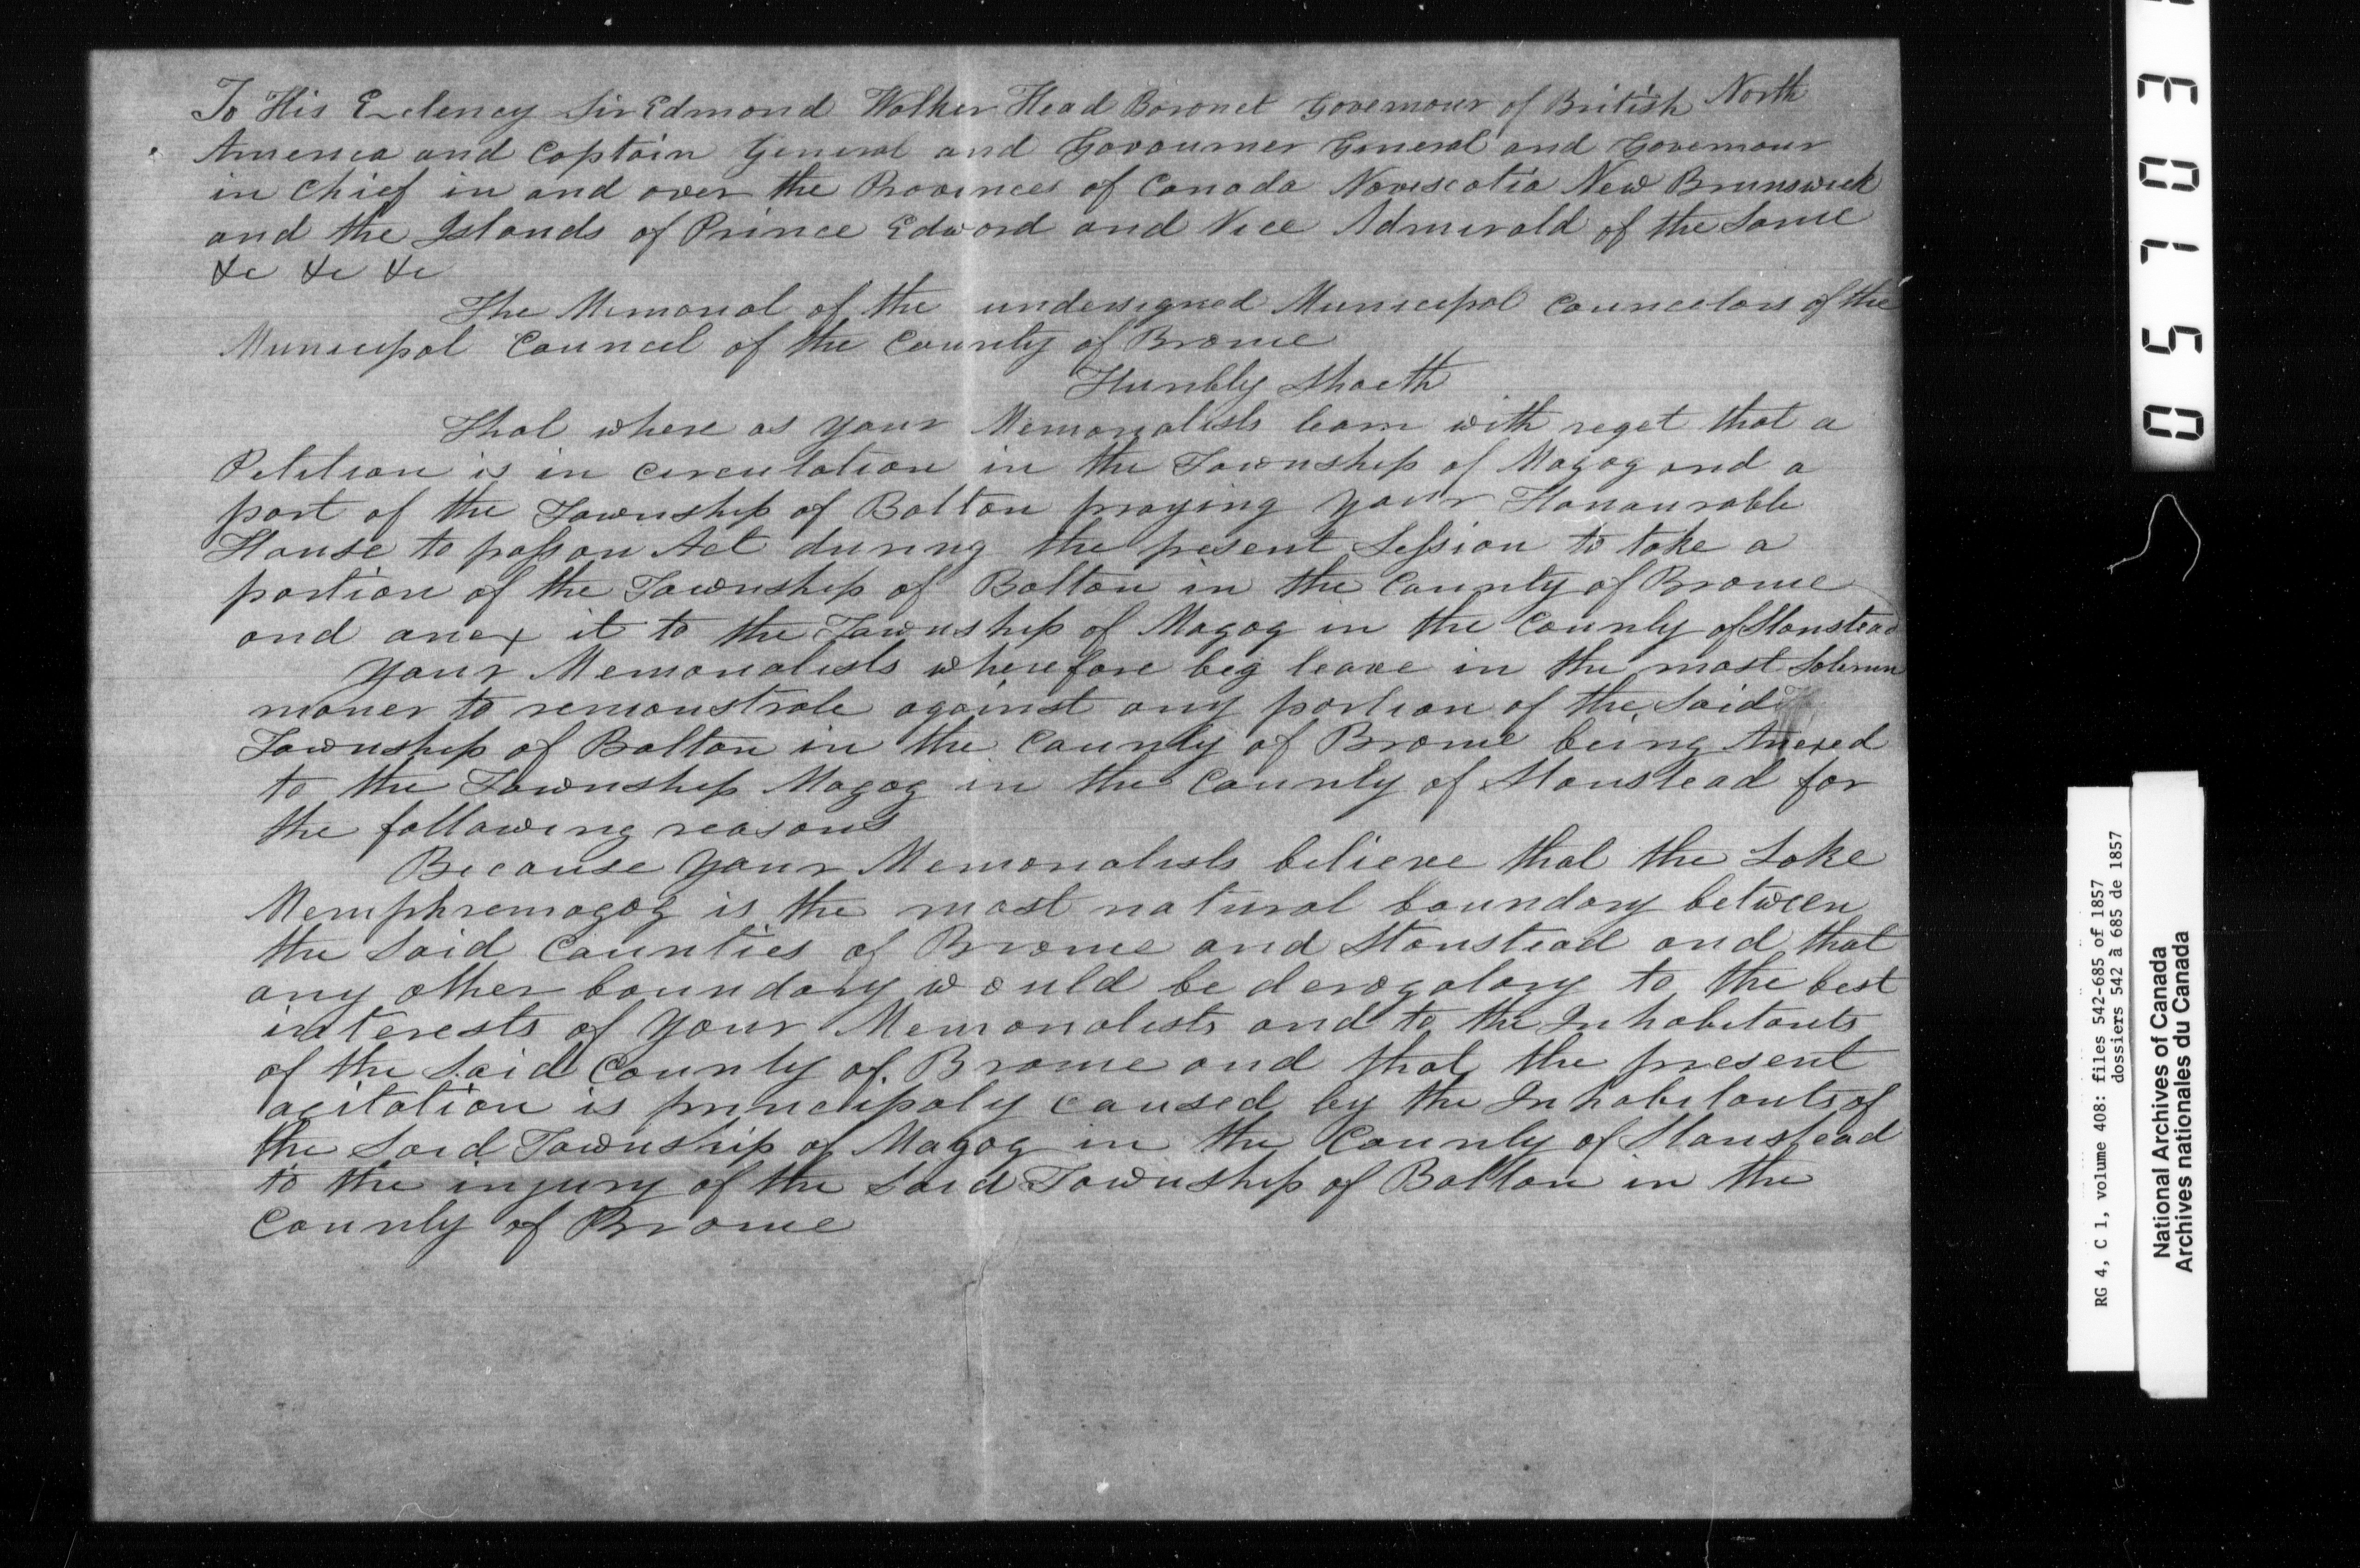 To His Exclency Sir Edmond Walker Head Boronet Governour of British North
America and Captain General and Govourner General and Governour
in Chief in and over the Provinces of Canada Novescotia New Brunswick
and the Islands of Prince Edword and Vice Admirald of the Same
&c &c &c
The Memorial of the undersigned Municipal Councelors of the
Municipal Council of the County of Brome
Humbly Shoeth
That where as your Memorialists learn with reget that a
Petition is in circulation in the Township of Magog and a
part of the Township of Bolton praying your Honourable
House to pass an Act during the present Session to take a
portion of the Township of Bolton in the County of Brome
and anex it to the Township of Magog in the County of Stanstead
Your Memorialists wherefore beg leave in the most Solemn
maner to remonstrate against any portion of the Said
Township of Bolton in the County of Brome being Anexed
to the Township Magog in the County of Stanstead for
the following reasons
Because your Memorialists believe that the Lake
Memphremagog is the most natural boundary between
the Said Counties of Brome and Stanstead and that
any other boundary would be derogatory to the best
interests of your Memorialists and to the Inhabitants
of the Said County of Brome and that the present
agitation is principaly caused by the Inhabitants of
the Said Township of Magog in the County of Stanstead
to the injury of the Said Township of Bolton in the
County of Brome
RG 4, C 1, volume 408: files 542-685 of 1857
dossiers 542 à 685 de 1857
National Archives of Canada
Archives nationales du Canada